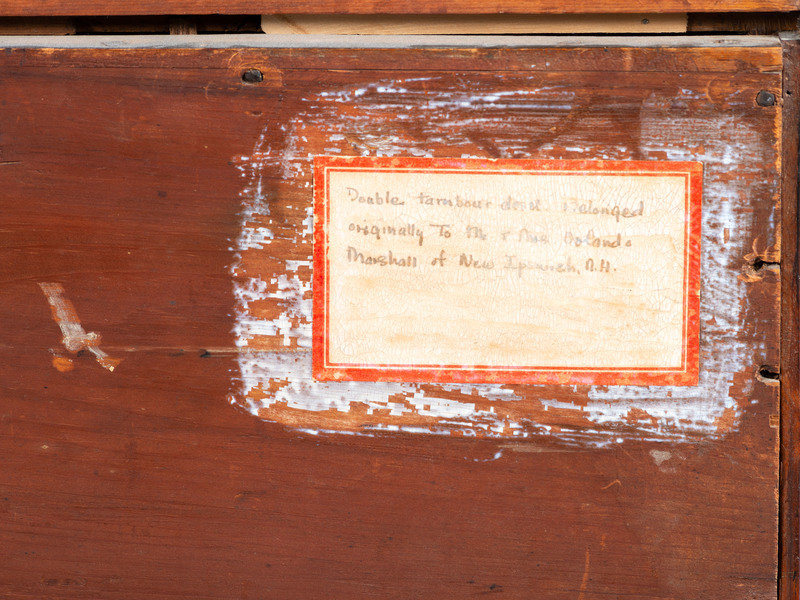 Double tambour desk. Belonged
originally To Mr & Mrs
Marshall of New Ipswich, N.H.